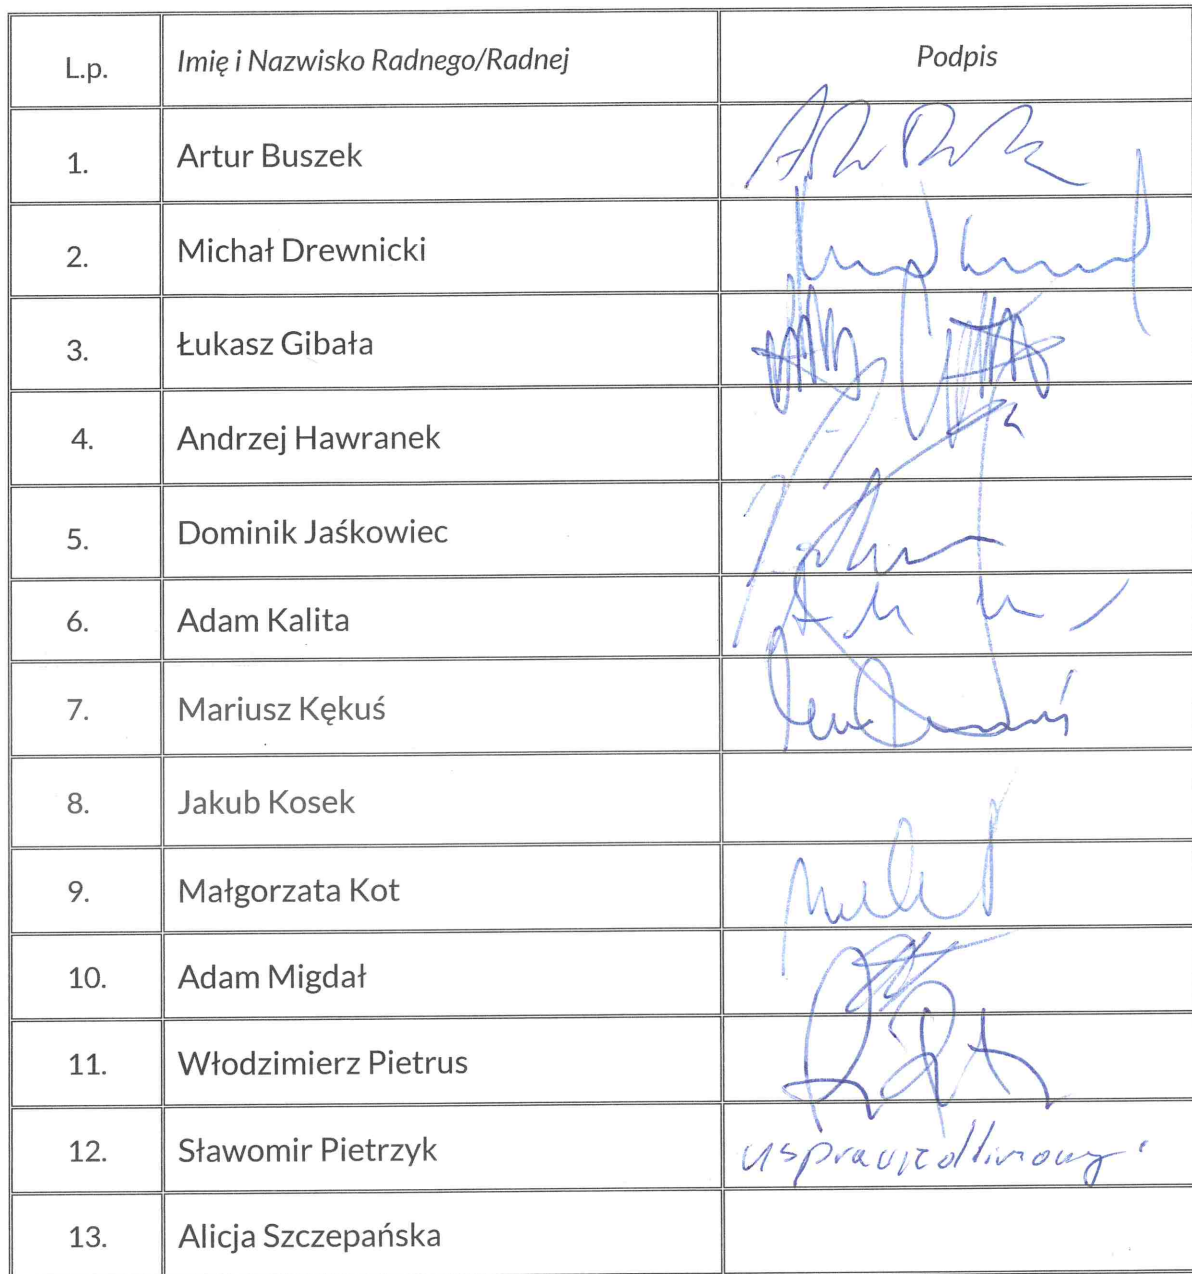 L.p. Imię i Nazwisko Radnego/Radnej Podpis
1. Artur Buszek
2. Michał Drewnicki
3. Łukasz Gibała
4. Andrzej Hawranek
5. Dominik Jaśkowiec
6. Adam Kalita
7. Mariusz Kękuś
8. Jakub Kosek
9. Małgorzata Kot
10. Adam Migdał
11. Włodzimierz Pietrus
12. Sławomir Pietrzyk usprawiedliwiony
13. Alicja Szczepańska